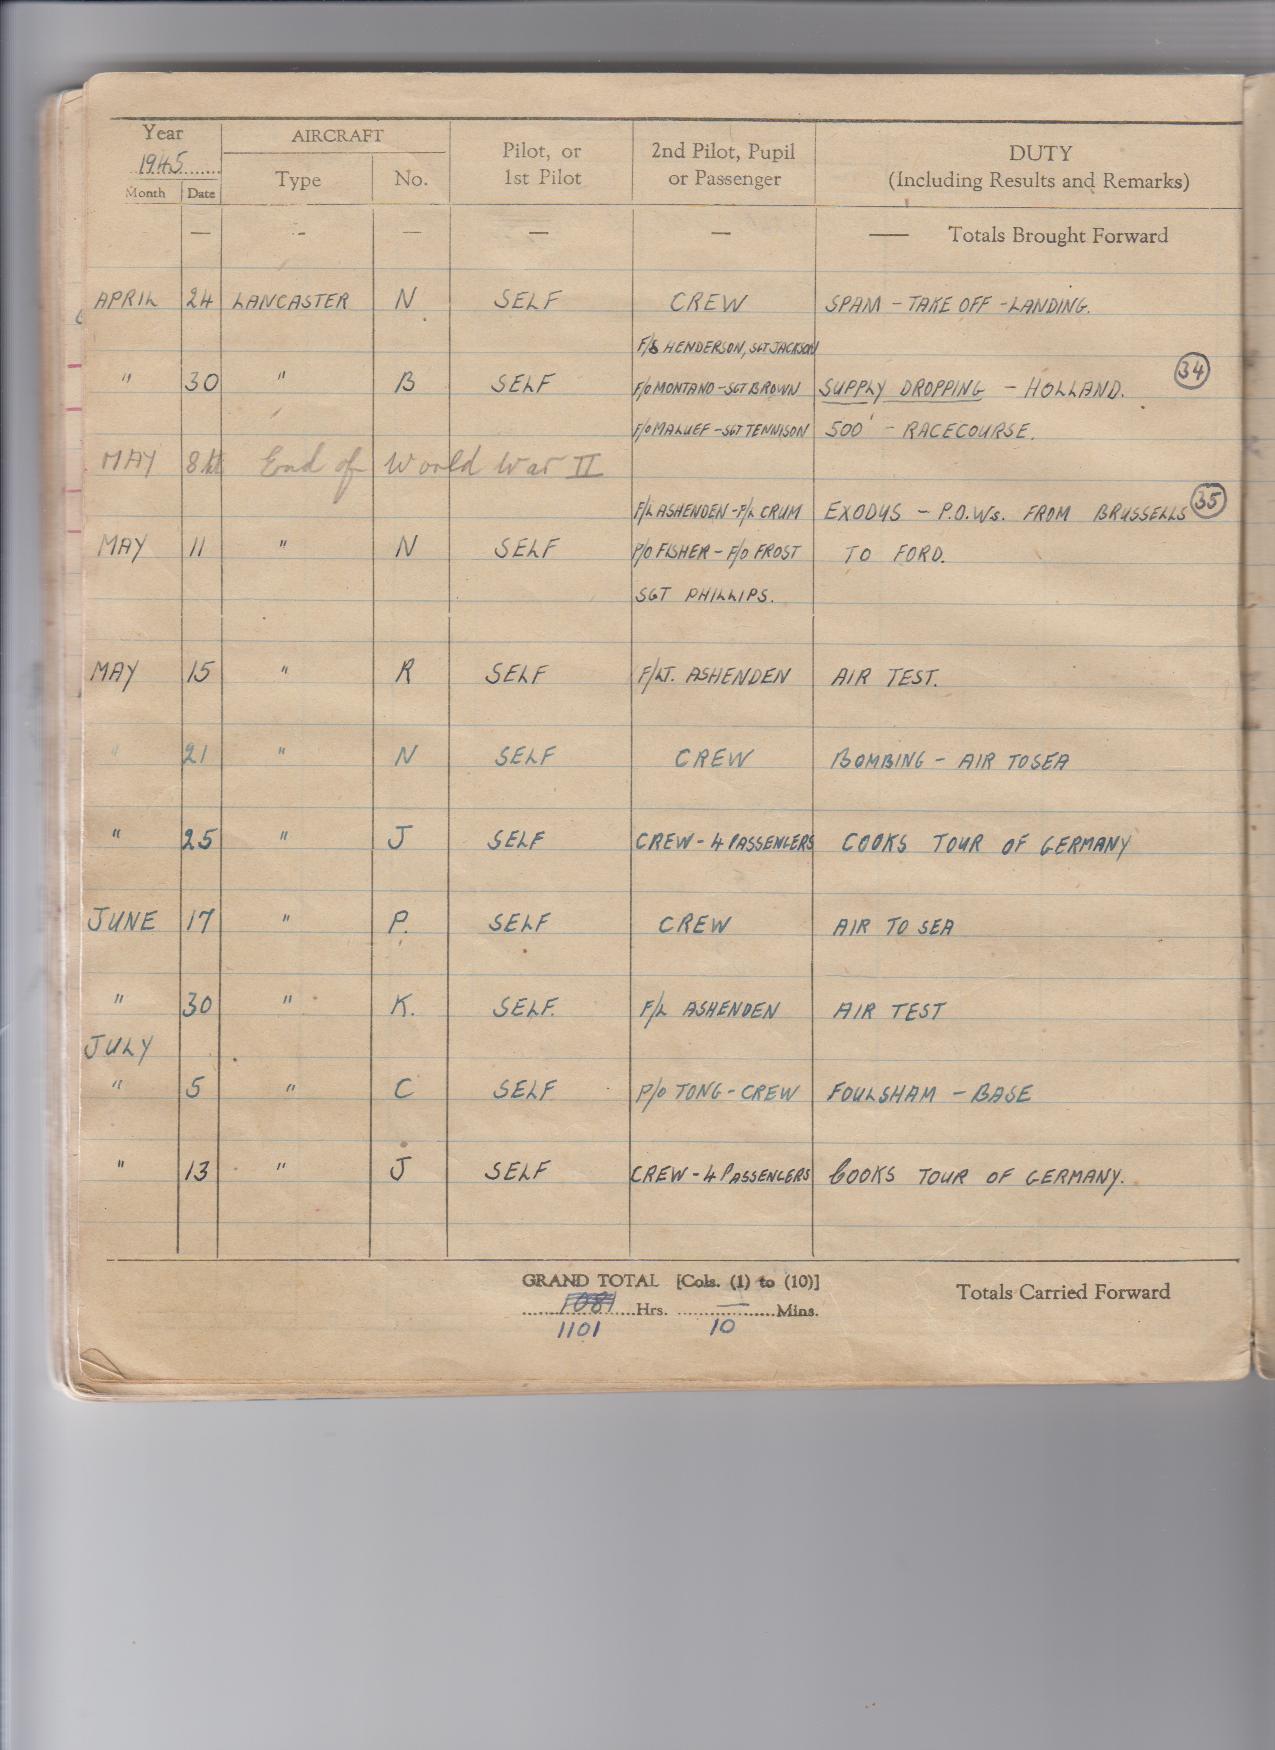 Year AIRCRAFT Pilot, or 1st Pilot 2nd Pilot, Pupil or Passenger DUTY (Including Results and Remarks)
1945
Month Date Type No.
— — — — — — Totals Brought Forward
APRIL 24 LANCASTER N SELF CREW SPAM - TAKE OFF - LANDING.
F/S HENDERSON, SGT JACKSON
" 30 " B SELF F/O MONTANO - SGT BROWN SUPPLY DROPPING - HOLLAND. 34
F/O MALUEF - SGT TENNISON 500' - RACECOURSE.
MAY 8th End of World War II
F/L ASHENDEN - F/L CRUM EXODUS - P.O.Ws. FROM BRUSSELLS 35
MAY 11 " N SELF P/O FISHER - F/O FROST TO FORD.
SGT PHILLIPS.
MAY 15 " R SELF F/LT. ASHENDEN AIR TEST.
" 21 " N SELF CREW BOMBING - AIR TO SEA
" 25 " J SELF CREW - 4 PASSENGERS COOKS TOUR OF GERMANY
JUNE 17 " P. SELF CREW AIR TO SEA
" 30 " K. SELF. F/L ASHENDEN AIR TEST
JULY
" 5 " C SELF P/O TONG - CREW FOULSHAM - BASE
" 13 " J SELF CREW - 4 PASSENGERS COOKS TOUR OF GERMANY.
GRAND TOTAL [Cols. (1) to (10)] Totals Carried Forward
1081 Hrs. — Mins.
1101 10